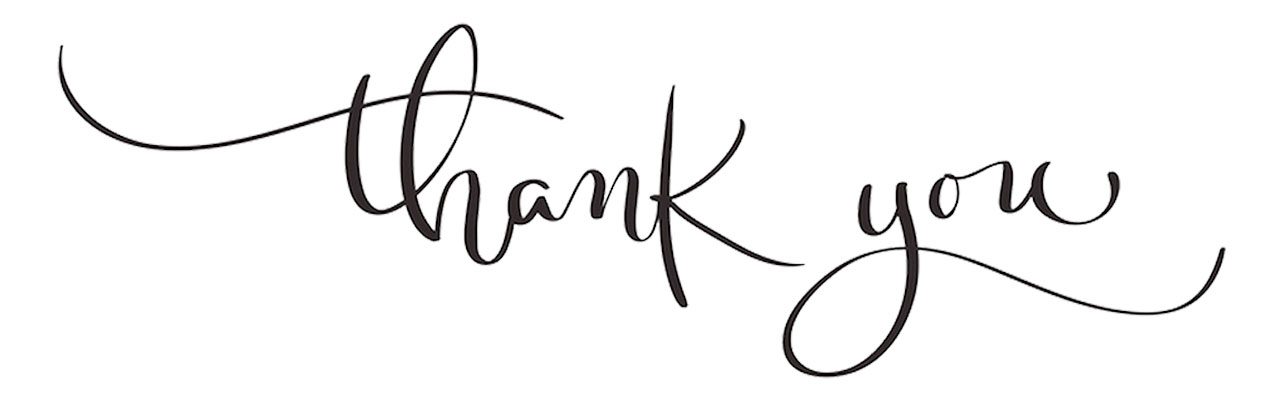 thank you